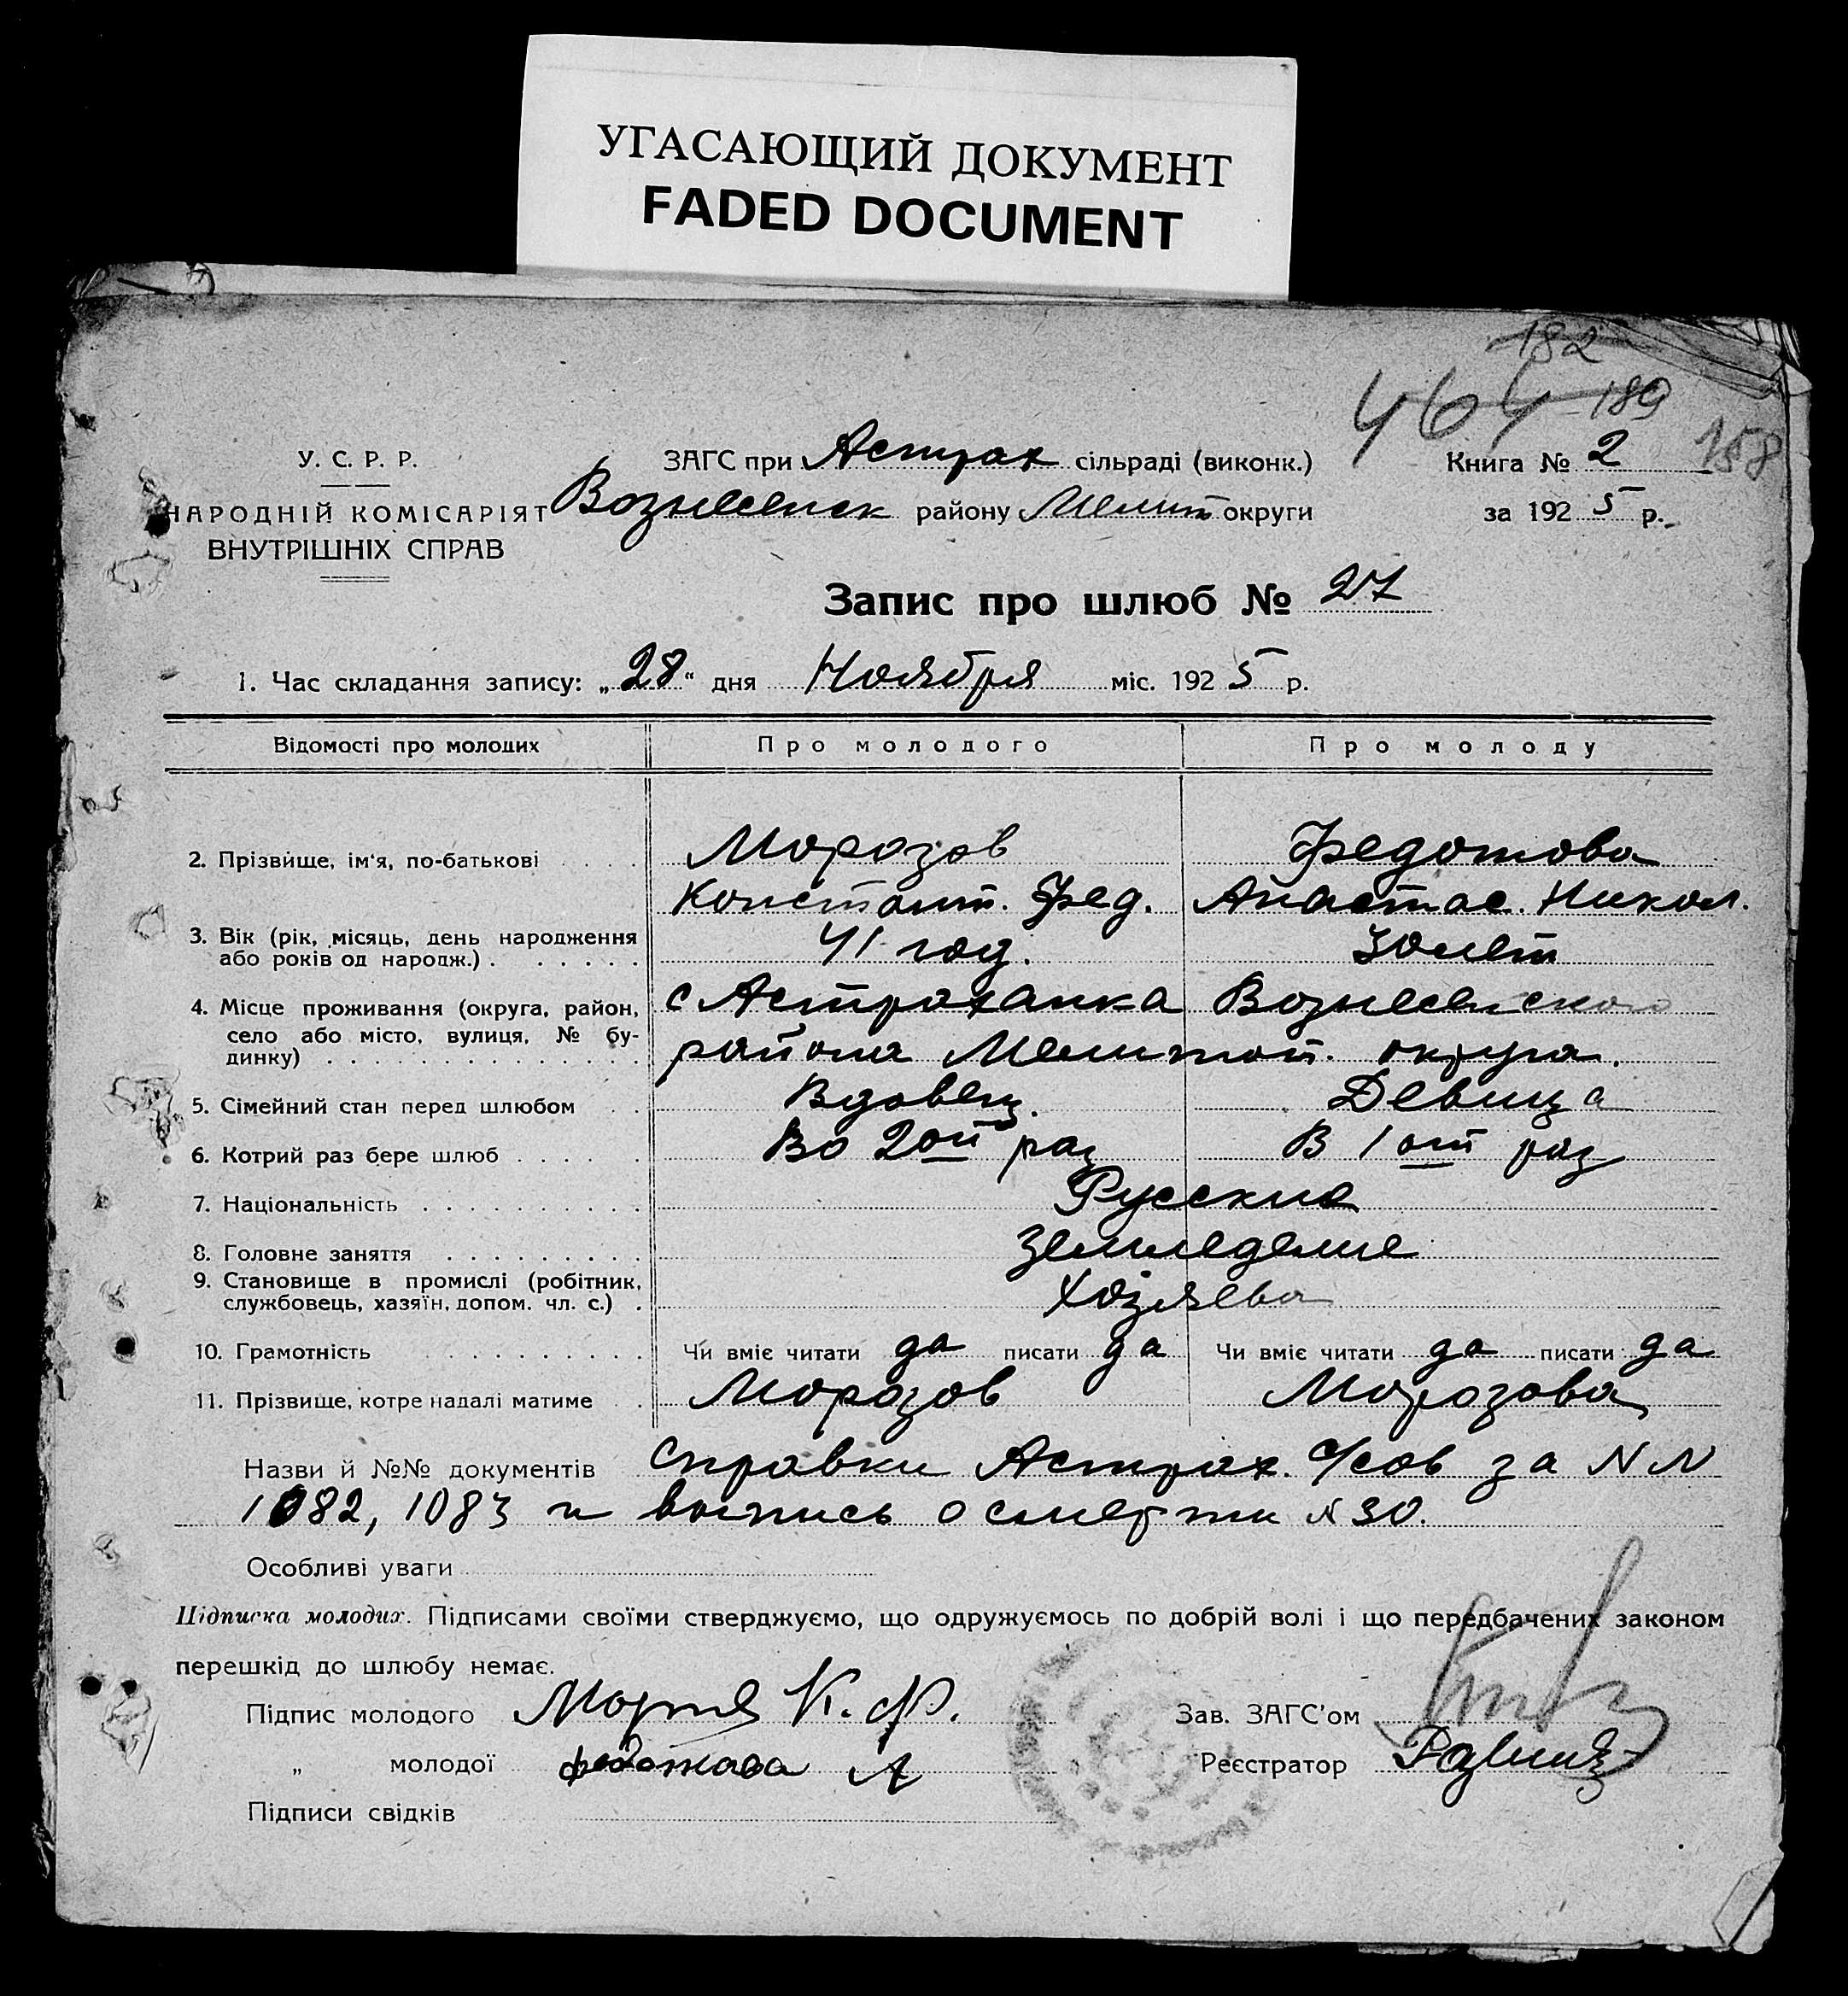 УГАСАЮЩИЙ ДОКУМЕНТ
FADED DOCUMENT
182
464 189
158
У. С. Р. Р.
НАРОДНІЙ КОМІСАРІЯТ
ВНУТРІШНІХ СПРАВ
ЗАГС при Астрах сільраді (виконк.)
Вознесенск району Мелит округи
Книга № 2
за 1925 р.
Запис про шлюб № 27
1. Час складання запису: „28" дня Ноября міс. 1925 р.
Відомості про молодих Про молодого Про молоду
2. Прізвище, ім'я, по-батькові Морозов Федотова
Констант. Фед. Анастас. Никол.
3. Вік (рік, місяць, день народження або років од народж.) 41 год. 30 лет
4. Місце проживання (округа, район, с Астраханка Вознесенского
село або місто, вулиця, № будинку) района Мелитоп. округа.
5. Сімейний стан перед шлюбом Вдовец. Девица
6. Котрий раз бере шлюб Во 2ой раз В 1ый раз
7. Національність Русские
8. Головне заняття Земледелие
9. Становище в промислі (робітник, службовець, хазяїн, допом. чл. с.) Хозяева
10. Грамотність Чи вміє читати да писати да Чи вміє читати да писати да
11. Прізвище, котре надалі матиме Морозов Морозова
Назви й №№ документів Справки Астрах. С/сов за NN
1082, 1083 и выпись о смерти N 30.
Особливі уваги
Підписка молодих. Підписами своїми стверджуємо, що одружуємось по добрій волі і що передбачених законом
перешкід до шлюбу немає.
Підпис молодого К. Ф. Зав. ЗАГС'ом
„ молодої федотова А Реєстратор
Підписи свідків